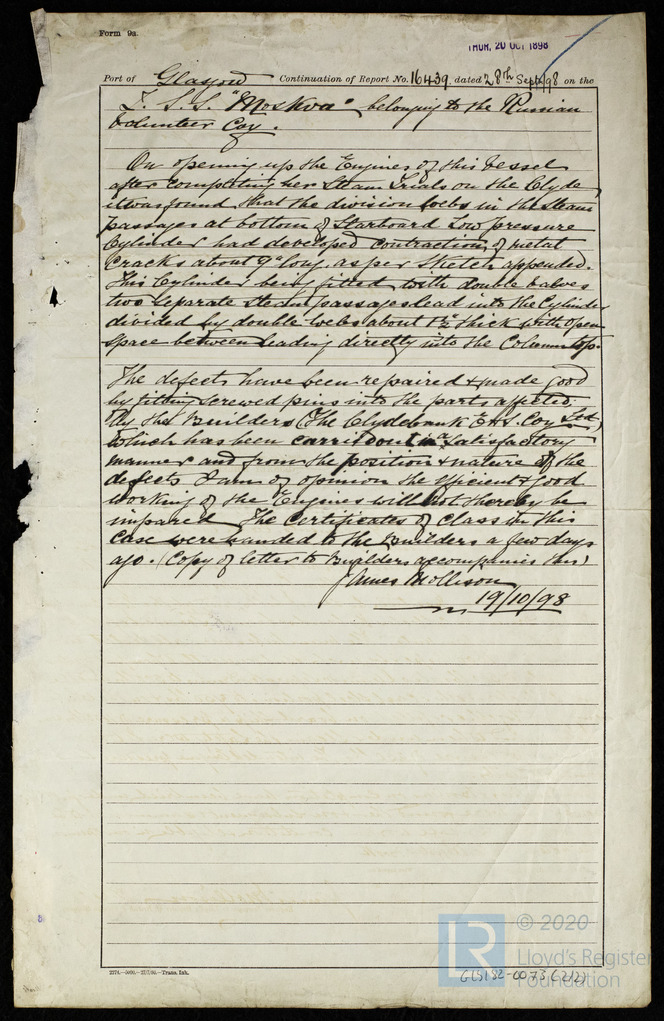 Form 9a.
THUR, 20 OCT 1898
Port of Glasgow Continuation of Report No. 16439 dated 28th Sept/98 on the
T. S. S. "Moskva" belonging to the Russian
Volunteer Coy.
On opening up the Engines of this Vessel
after completing her Steam Trials on the Clyde
it was found that the division webs in the steam
passages at bottom of Starboard Low pressure
Cylinder had developed contraction of metal
cracks about 9" long, as per sketch appended.
This Cylinder being fitted with double valves
two separate steam passages lead into the Cylinder
divided by double webs about 1½" thick with open
space between leading directly into the Column top.
The defects have been repaired & made good
by fitting screwed pins into the parts affected,
by the Builders (The Clydebank E & S. Coy Ltd.)
which has been carried out in a satisfactory
manner and from the position & nature of the
defects I am of opinion the efficient & good
working of the Engines will not thereby be
impared The Certificates of Class in this
case were handed to the Builders a few days
ago. (Copy of letter to Builders accompanies this)
James Mollison
19/10/98
© 2020
Lloyd's Register
Foundation
LR
GLS182-0073 (2/2)